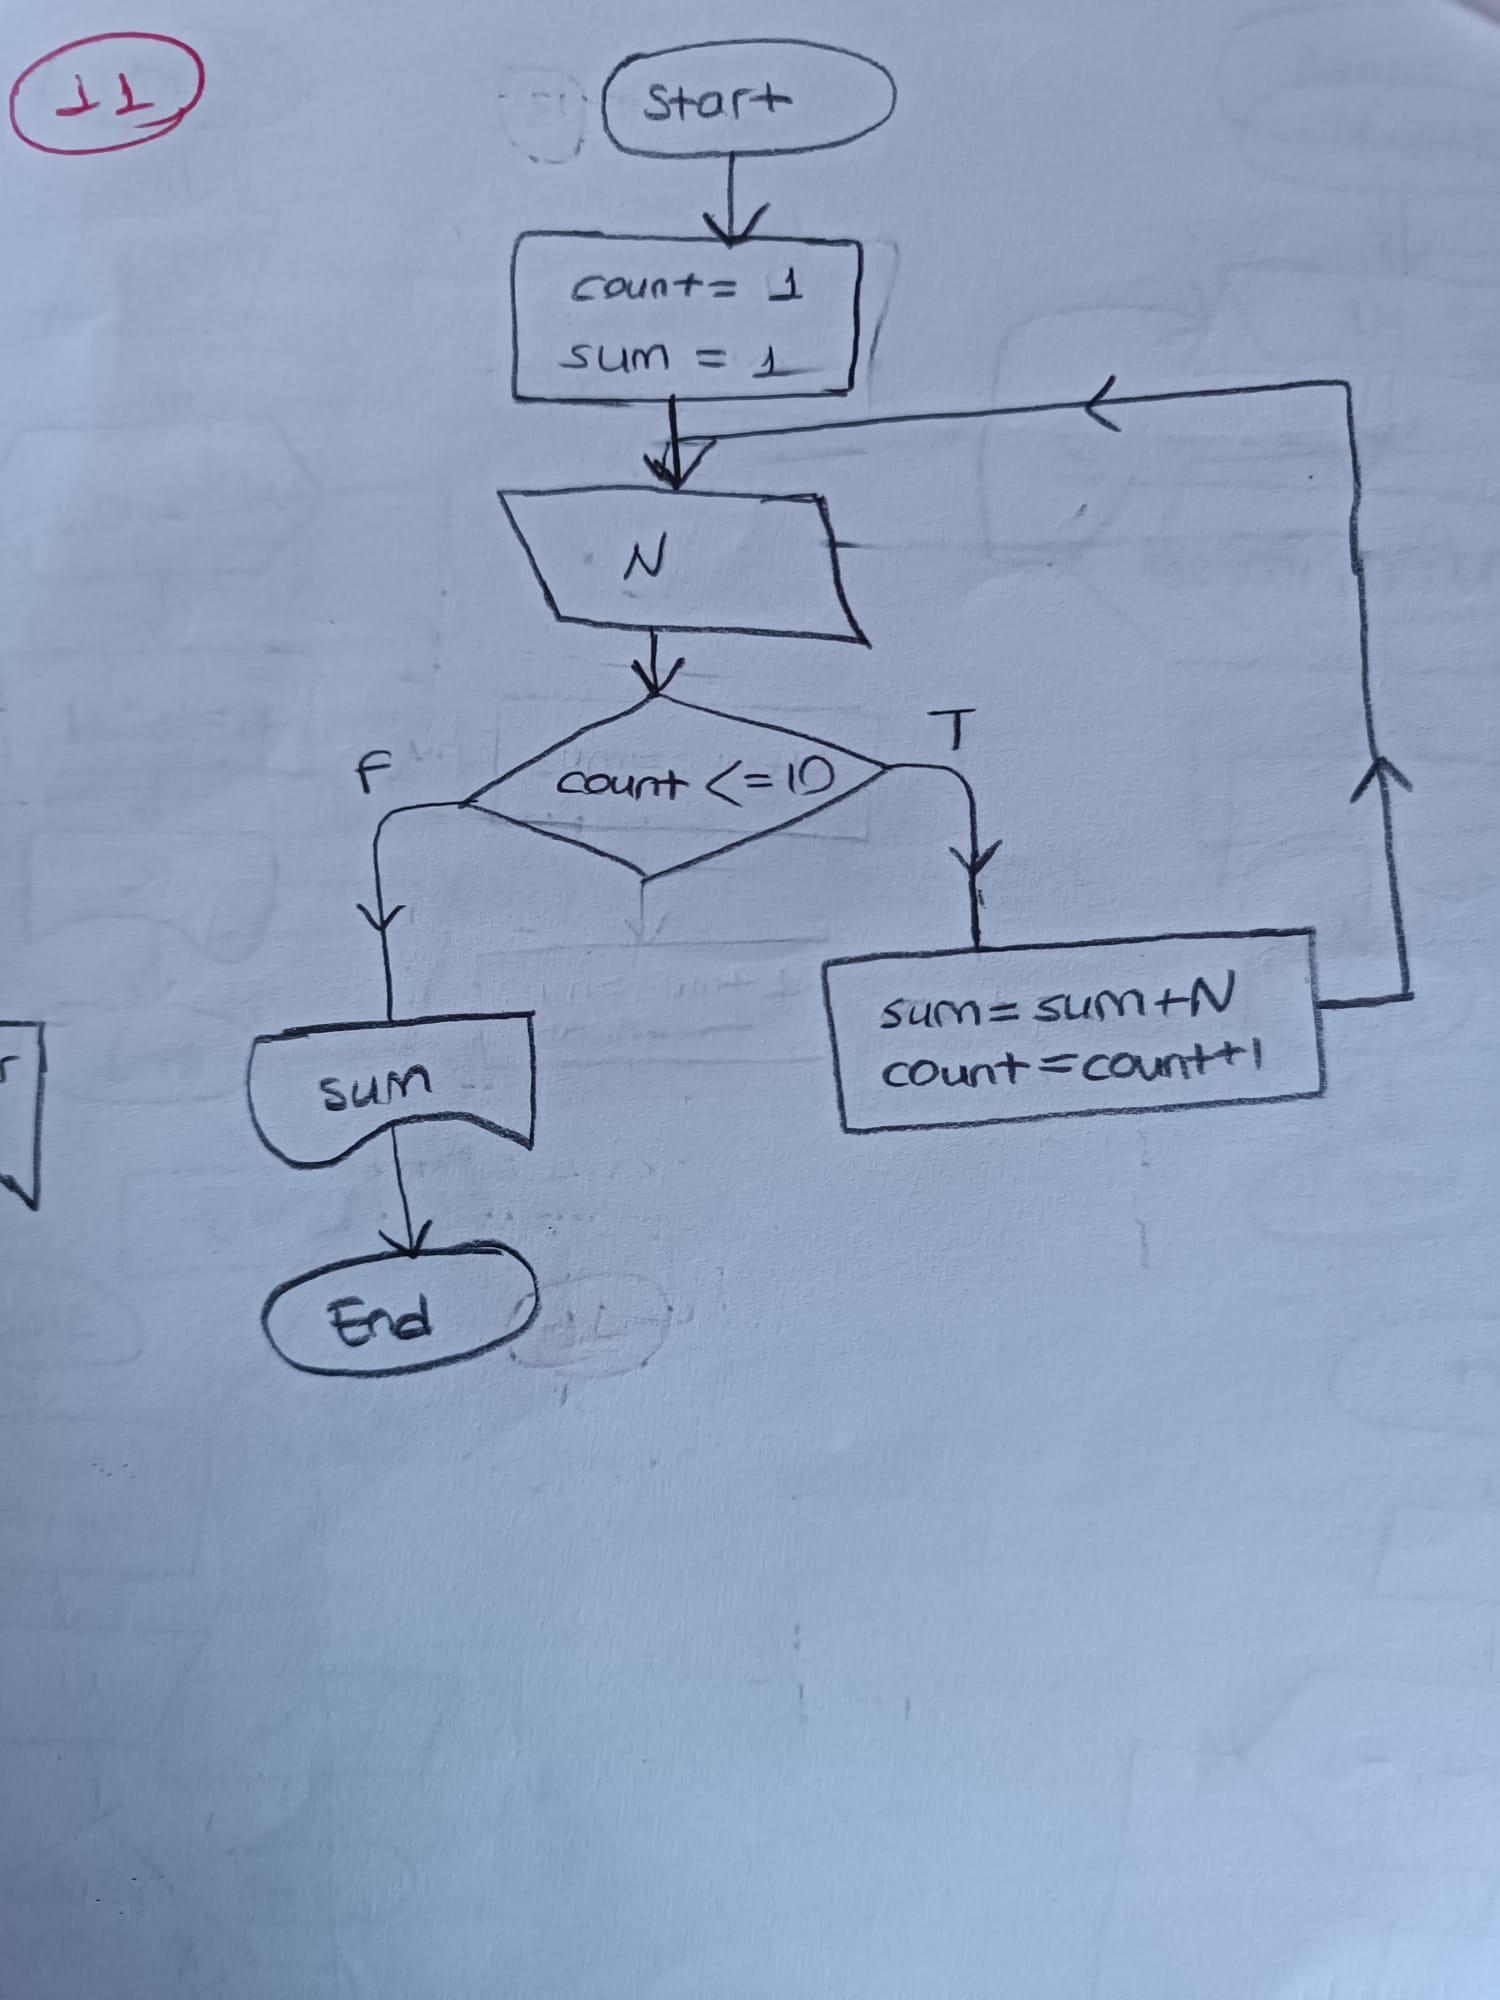 11
Start
count= 1
sum = 1
N
F
T
count <=10
sum=sum+N
count=count+1
sum
End